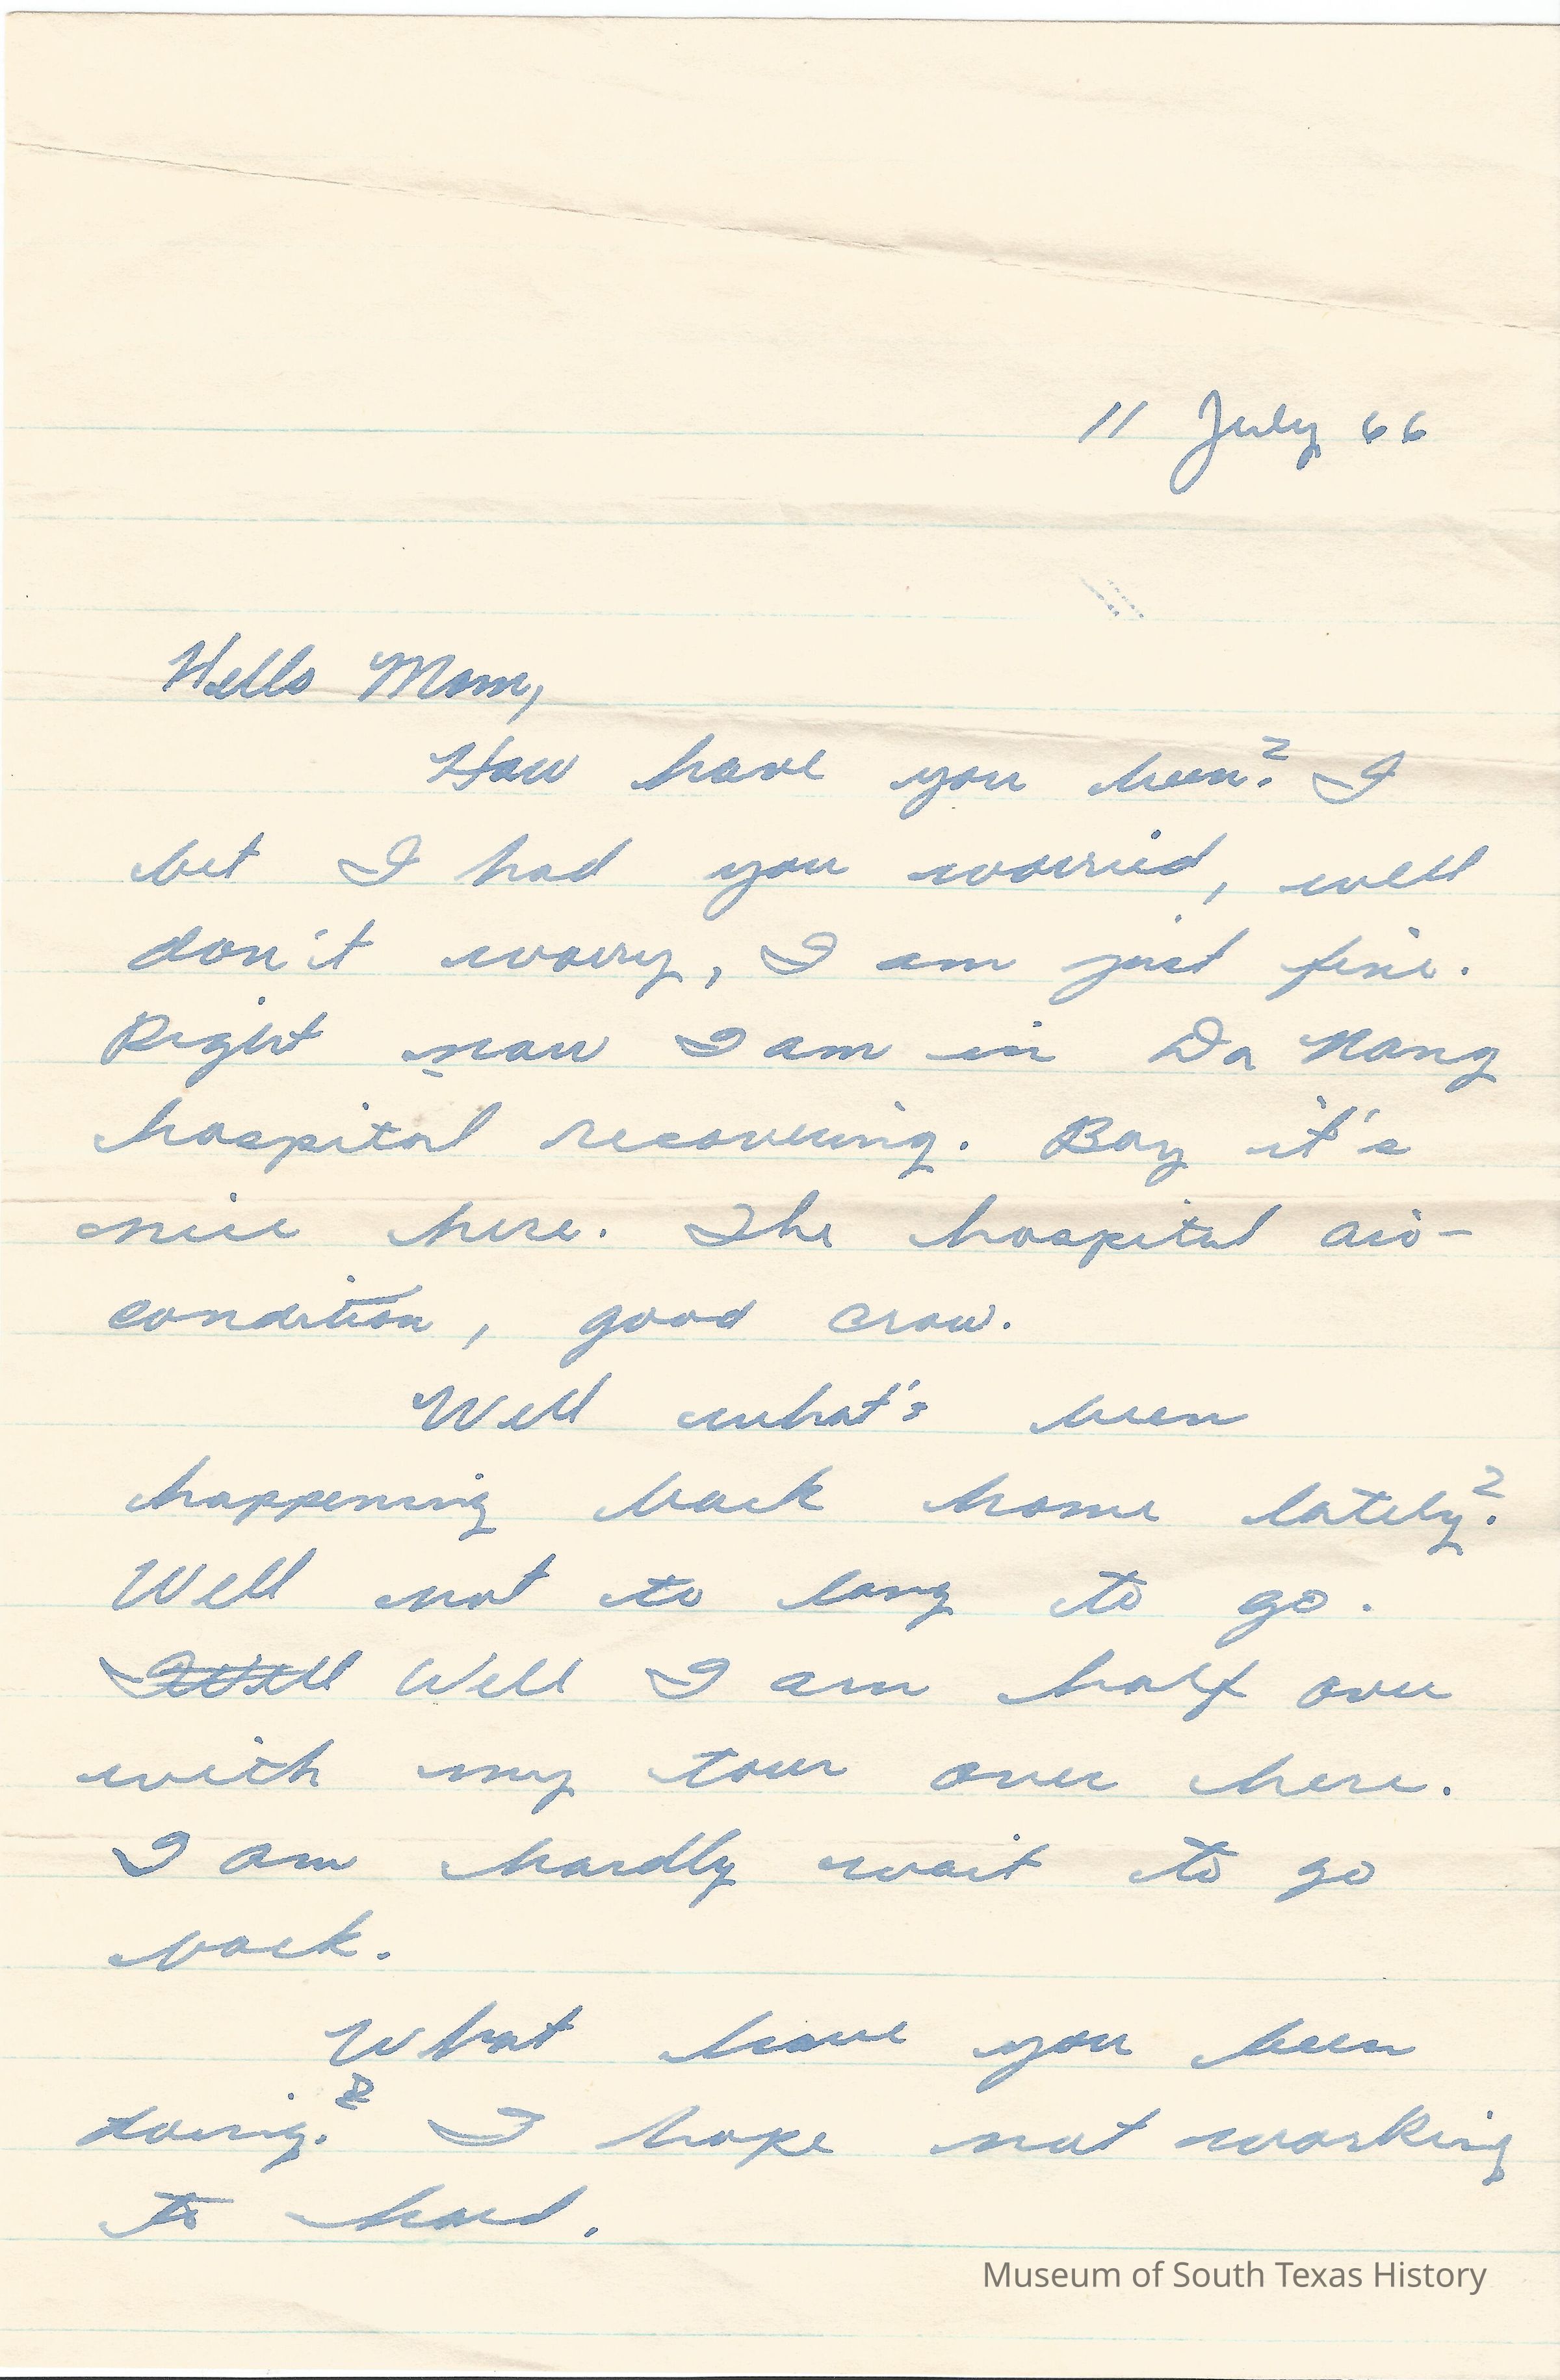 11 July 66
Hello Mom,
How have you been? I
bet I had you worried, well
don't worry, I am just fine.
Right now I am in Da Nang
hospital recovering. Boy it's
nice here. The hospital air-
condition, good crow.
Well what's been
happening back home lately?
Well not to long to go.
I will Well I am half over
with my tour over here.
I am hardly wait to go
back.
What have you been
doing? I hope not working
to hard.
Museum of South Texas History